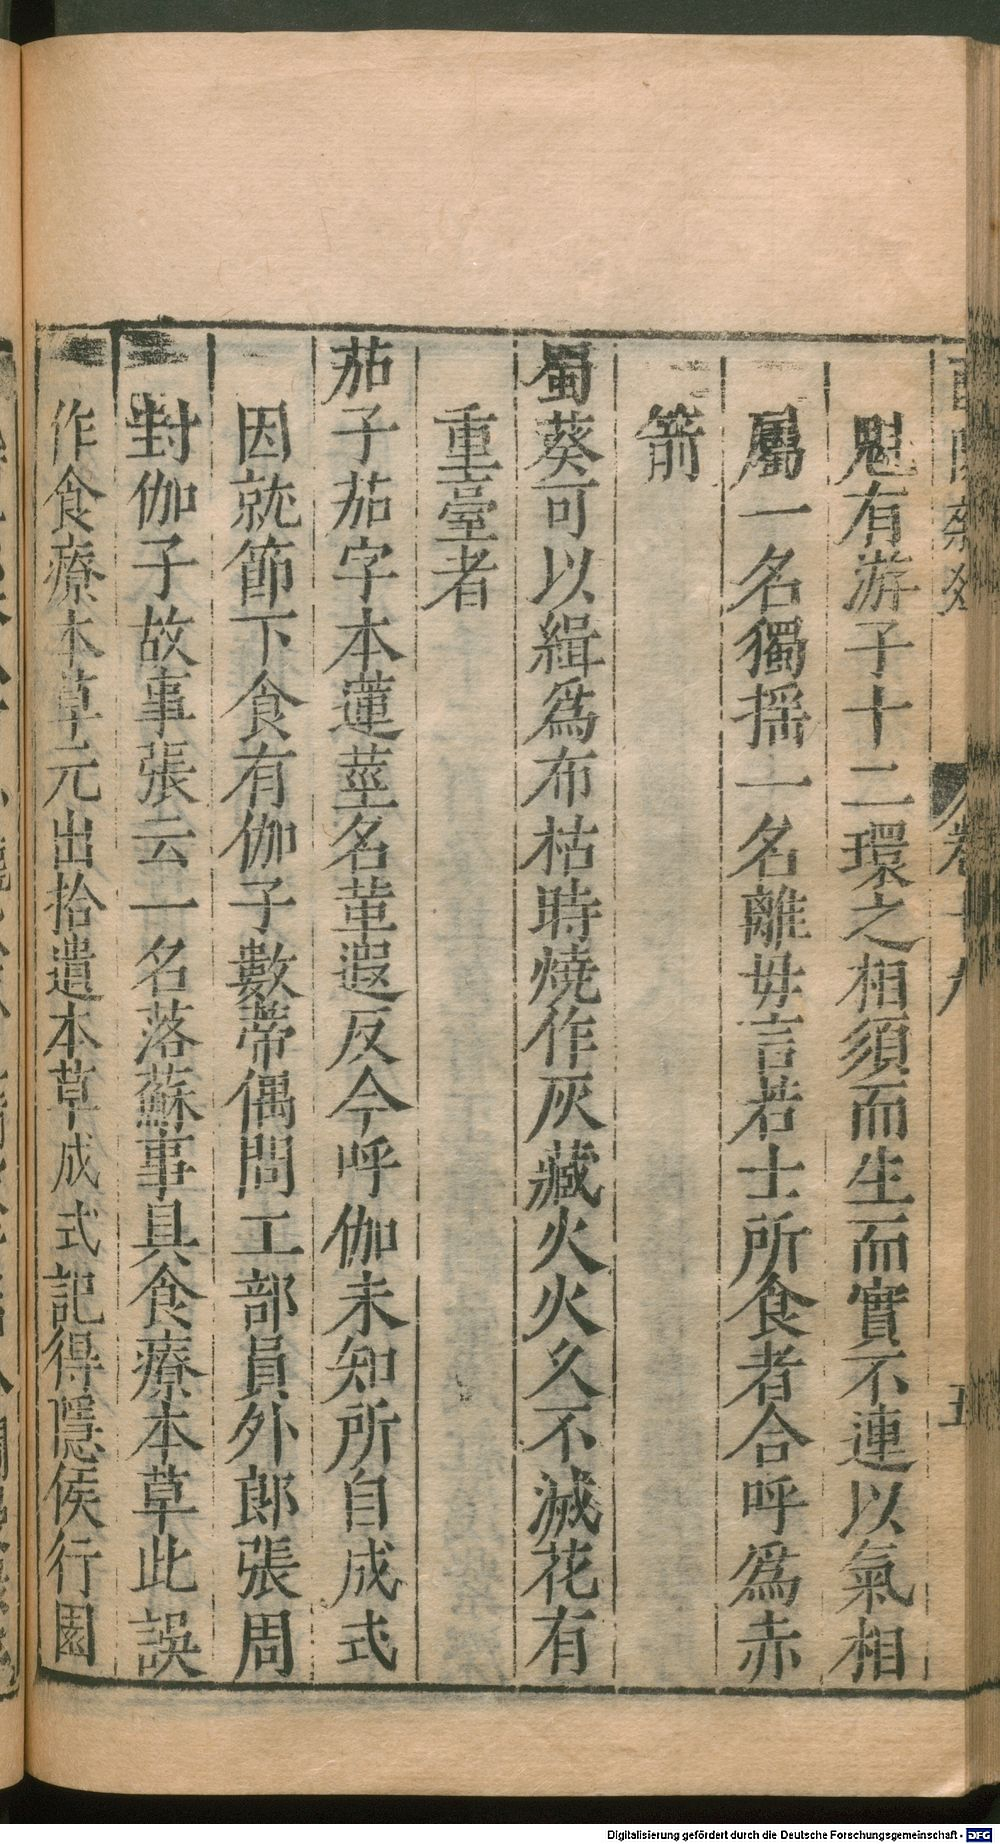 魁有游子十二環之相須而生而實不連以氣相
屬一名獨揺一名離毋言若士所食者合呼爲赤
箭
蜀葵可以緝爲布枯時燒作灰藏火火久不滅花有
重臺者
茄子茄字本蓮莖名革遐反今呼伽未知所自成式
因就節下食有伽子數蔕偶問工部員外郎張周
對伽子故事張云一名落蘇事具食療本草此誤
作食療本草元出拾遺本草成式記得隱侯行園
Digitalisierung gefördert durch die Deutsche Forschungsgemeinschaft - DFG